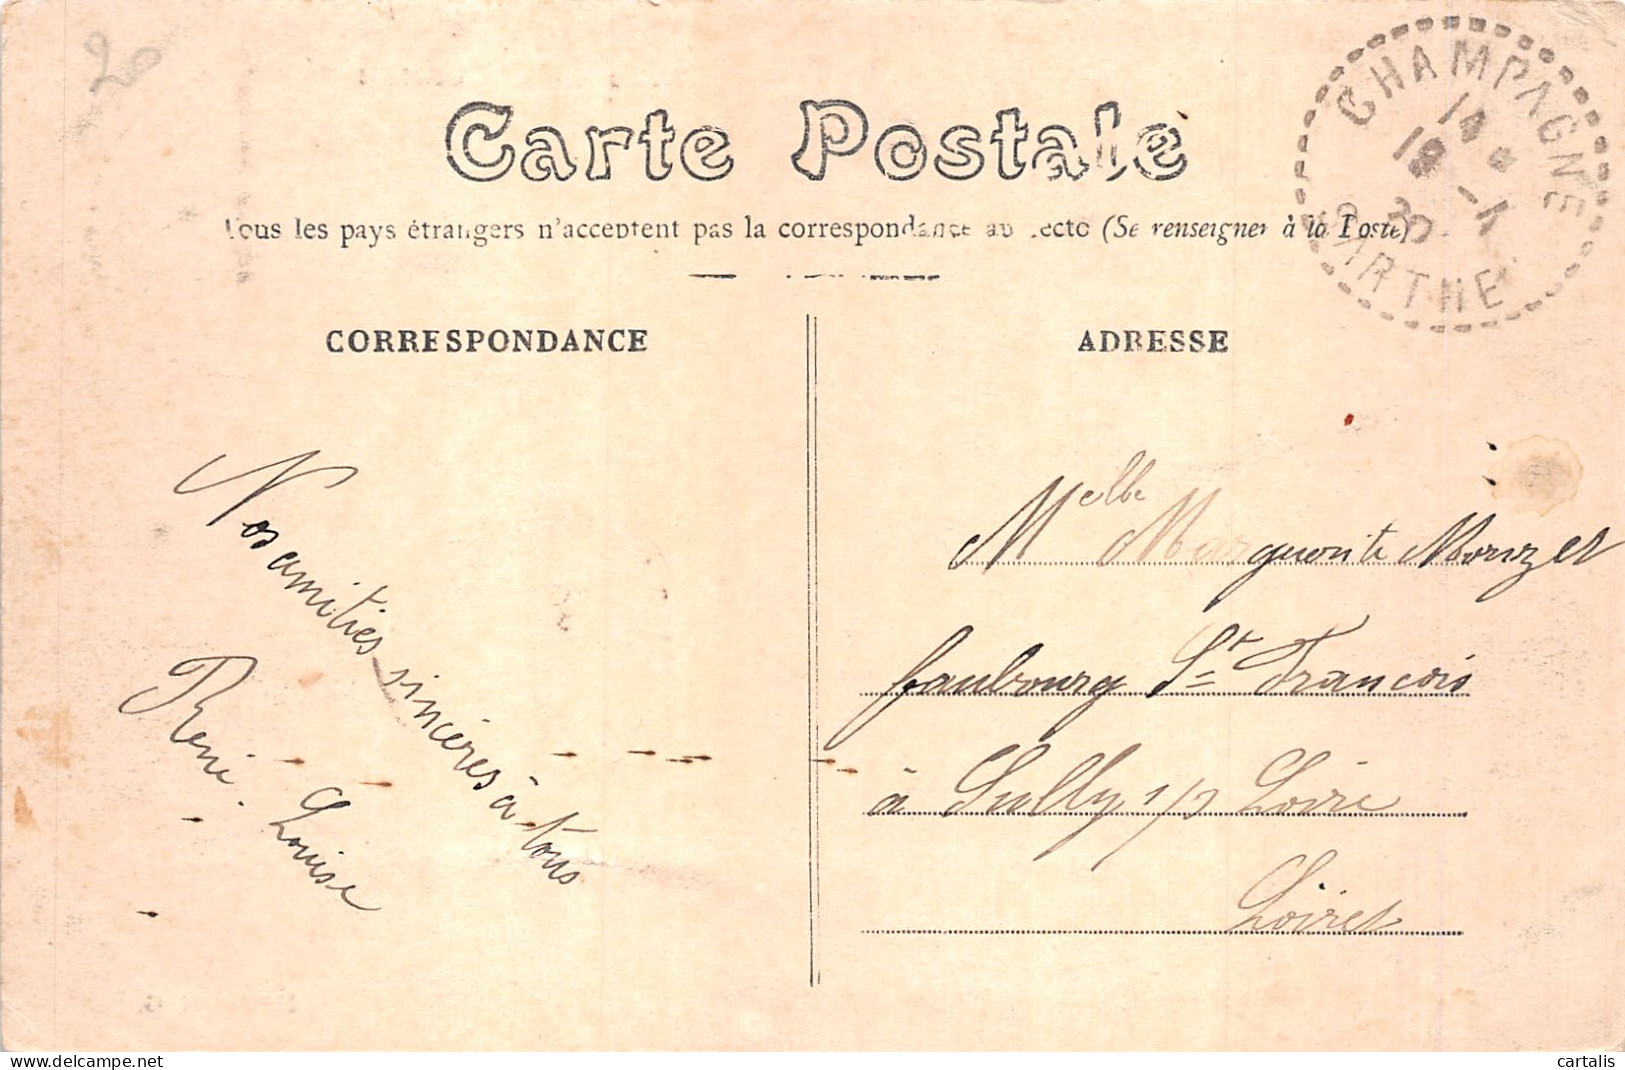 20
Carte Postale
Tous les pays étrangers n'acceptent pas la correspondance au recto (Se renseigner à la Poste)
CHAMPAGNE
SARTHE
CORRESPONDANCE
ADRESSE
Nos amities sincères à tous
René. Louise
Melle Marguerite Mouzet
faubourg St François
à Sully s/ Loire
Loiret
cartalis